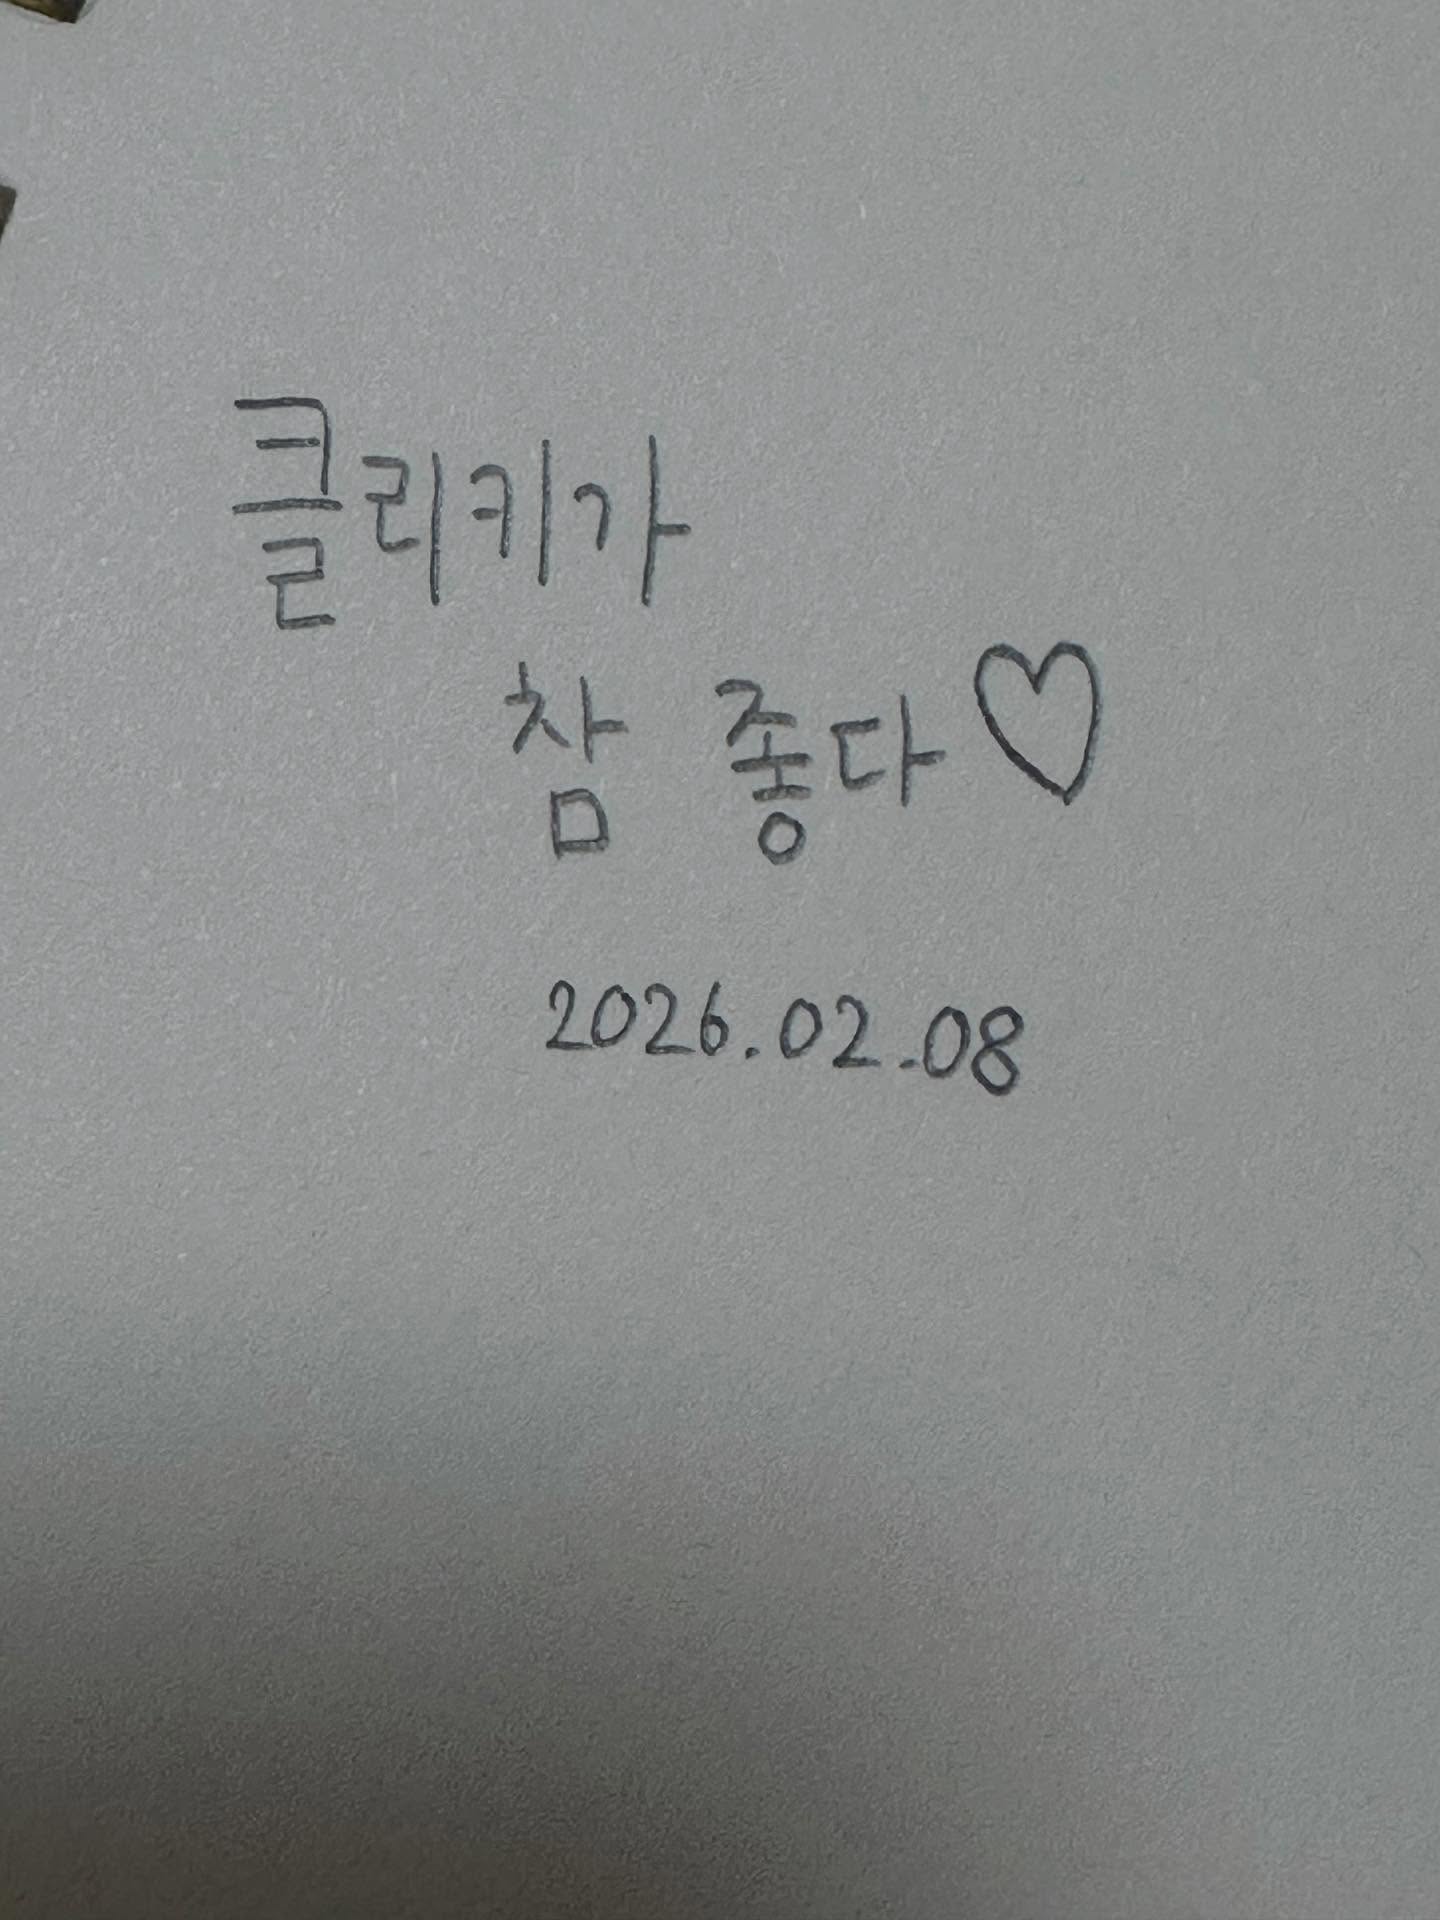 클리키가
참 좋다♡
2026.02.08